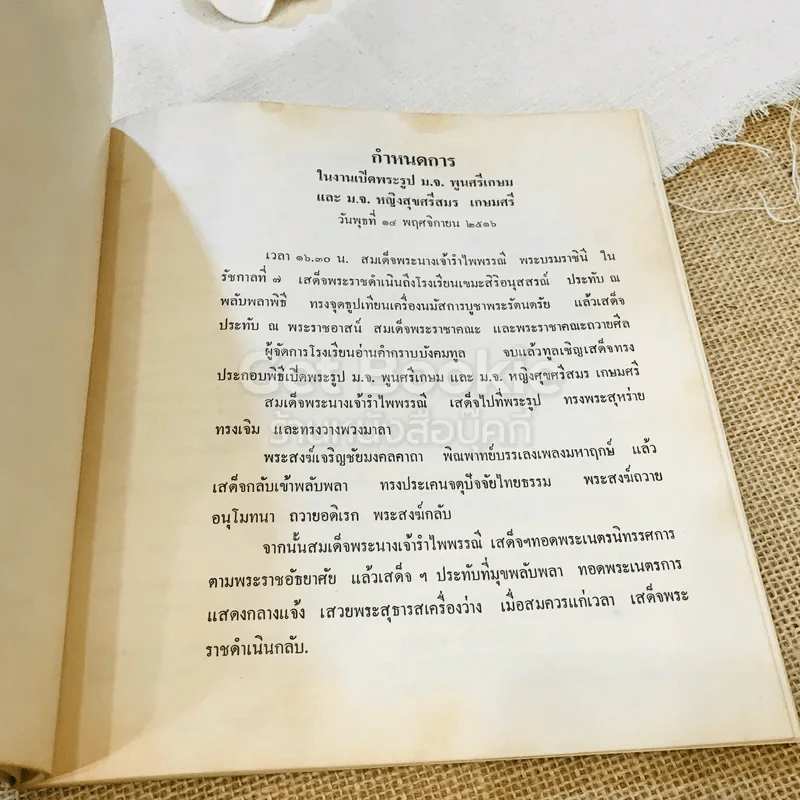 กำหนดการ
ในงานเปิดพระรูป ม.จ. พูนศรีเกษม
และ ม.จ. หญิงสุขศรีสมร เกษมศรี
วันพุธที่ ๑๔ พฤศจิกายน ๒๕๑๖
เวลา ๑๖.๓๐ น. สมเด็จพระนางเจ้ารำไพพรรณี พระบรมราชินี ใน
รัชกาลที่ ๗ เสด็จพระราชดำเนินถึงโรงเรียนเขมะสิริอนุสสรณ์ ประทับ ณ
พลับพลาพิธี ทรงจุดธูปเทียนเครื่องนมัสการบูชาพระรัตนตรัย แล้วเสด็จ
ประทับ ณ พระราชอาสน์ สมเด็จพระราชาคณะ และพระราชาคณะถวายศีล
ผู้จัดการโรงเรียนอ่านคำกราบบังคมทูล จบแล้วทูลเชิญเสด็จทรง
ประกอบพิธีเปิดพระรูป ม.จ. พูนศรีเกษม และ ม.จ. หญิงสุขศรีสมร เกษมศรี
สมเด็จพระนางเจ้ารำไพพรรณี เสด็จไปที่พระรูป ทรงพระสุหร่าย
ทรงเจิม และทรงวางพวงมาลา
พระสงฆ์เจริญชัยมงคลคาถา พิณพาทย์บรรเลงเพลงมหาฤกษ์ แล้ว
เสด็จกลับเข้าพลับพลา ทรงประเคนจตุปัจจัยไทยธรรม พระสงฆ์ถวาย
อนุโมทนา ถวายอดิเรก พระสงฆ์กลับ
จากนั้นสมเด็จพระนางเจ้ารำไพพรรณี เสด็จฯทอดพระเนตรนิทรรศการ
ตามพระราชอัธยาศัย แล้วเสด็จ ฯ ประทับที่มุขพลับพลา ทอดพระเนตรการ
แสดงกลางแจ้ง เสวยพระสุธารสเครื่องว่าง เมื่อสมควรแก่เวลา เสด็จพระ
ราชดำเนินกลับ.
Get Bookie
ร้านหนังสือบุ๊คกี้